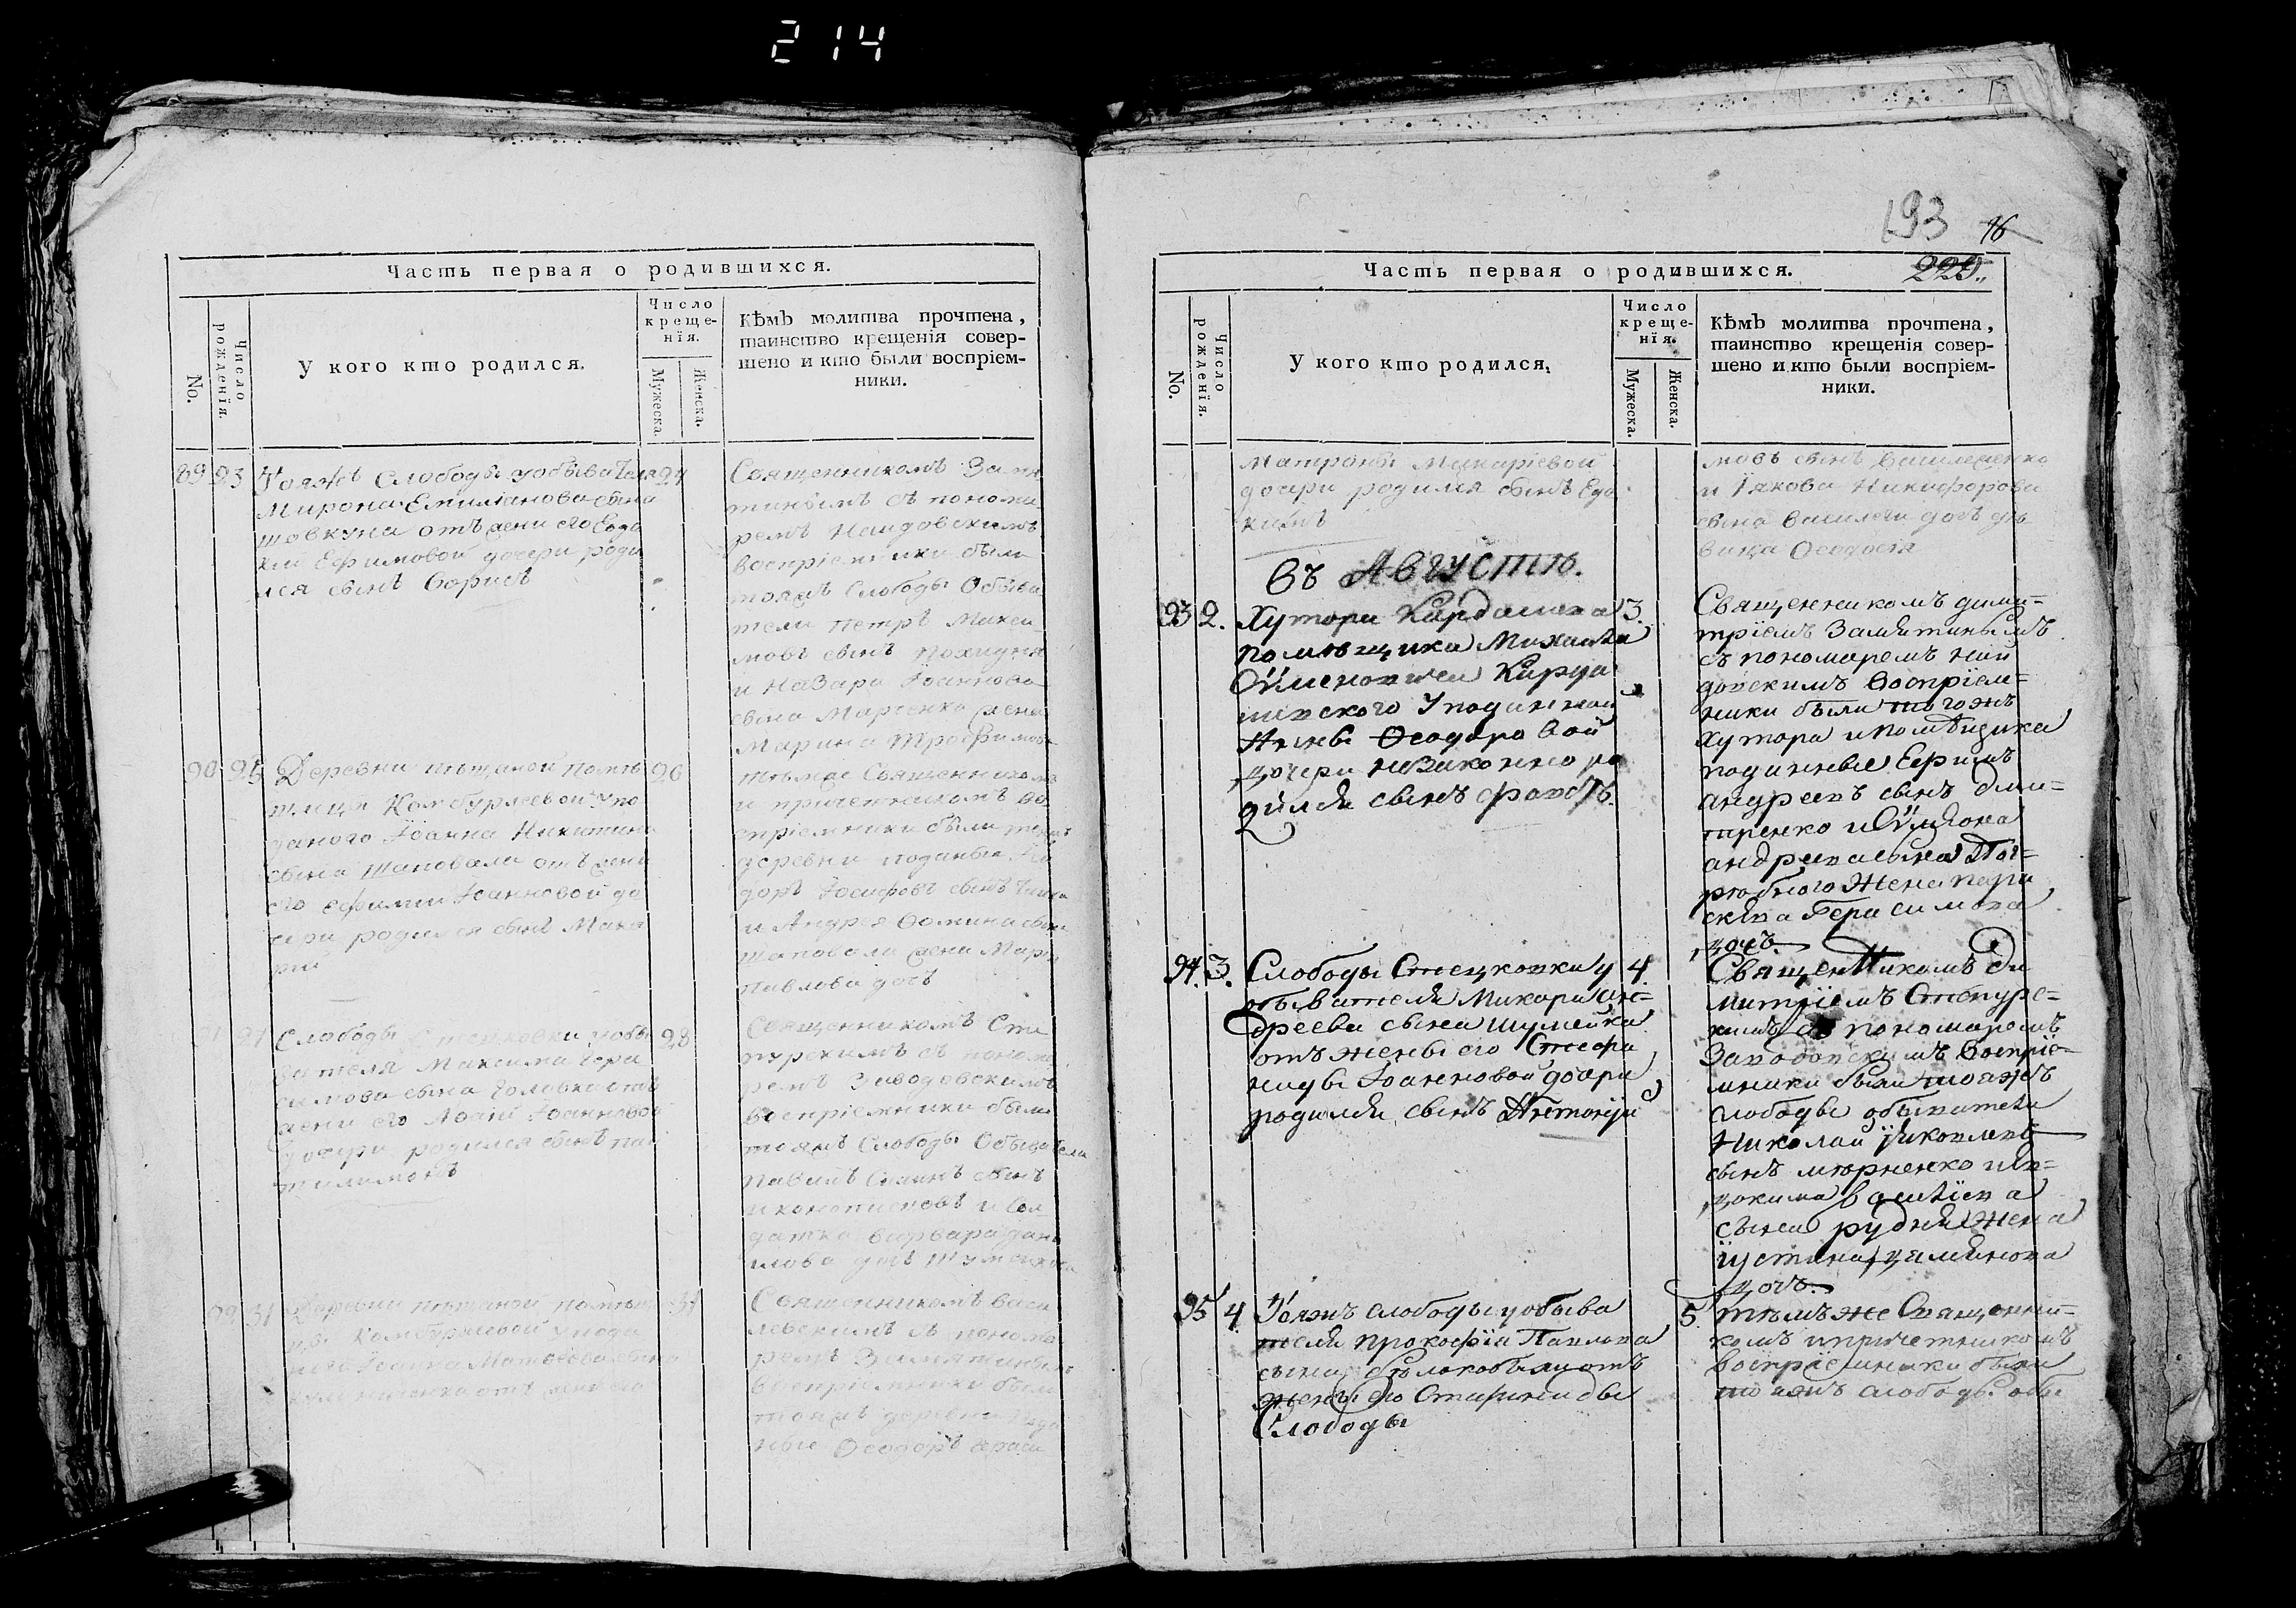 214
Часть первая о родившихся.
No.
Число рожденїя.
У кого кто родился.
Число
креще-
нїя.
Мужеска.
Женска.
Кѣмъ молитва прочтена,
таинство крещенія совер-
шено и кто были воспріем-
ники.
89 23 Тояжъ Слободы уобывателя 24
Мирона Емиліанова сына
отъ жени его Евдо
кіи Ефимовой дочери роди
лся сынъ Борисъ
Священникомъ Замя
тинымъ съ понома
ремъ Наидовскимъ
воспріемники были
тояжъ Слободы Обыва
тели Петръ Макси
мовъ сынъ
и Назара Іоаннова
сына Марченка жена
Марина Трофимова
90 25 Деревни помѣ 26
щицы Камбурлеевой упо
даного Іоанна Никитина
сына Шаповала отъ жени
его Ефиміи Іоанновой до
чери родился сынъ Мака
рій
тѣмже Священникомъ
и причетникомъ во
спріемники были тоежъ
деревни поданые
доръ Іосифовъ сынъ
и Андрея Фомина сына
Шаповала жена Марія
Павлова дочь
91 27 Слободы Стецковки уобы 28
вателя Максима Гера
симова сына Головка отъ
жени его Іоанновой
дочери родился сынъ Пан
телимонъ
Священникомъ Сте
пурскимъ съ понома
ремъ Заводовскимъ
воспріемники были
тояжъ Слободы Обыватели
Павелъ сынъ
и Сол
датка Варвара Дани
лова дочь
92 31 Деревни помѣщи 31
цы Камбурлеевой упода
ного Іоанна Матвеева сына
отъ жени его
Священникомъ Васи
левскимъ съ понома
ремъ Замятинымъ
воспріемники были
тояжъ деревни пода
ные Ѳеодоръ
193 16
229.
Часть первая о родившихся.
No.
Число рожденїя.
У кого кто родился.
Число
креще-
нїя.
Мужеска.
Женска.
Кѣмъ молитва прочтена,
таинство крещенія совер-
шено и кто были воспріем-
ники.
Матроны Макаріевой
дочери родился сынъ Евдо
кимъ
мовъ сынъ Василенко
и Іакова Никифорова
сына Василеги дочь дѣ
вица Ѳеодосія
Въ Августѣ.
93 2. Хутора Кардашева 3.
помѣщика Михаила
Сѵменовича Карда
шевского Уподанной
Анны Ѳеодоровой
дочери незаконно ро
дился сынъ
Священникомъ дими=
тріемъ Замятинымъ
съ пономаремъ Най
довскимъ воспріем=
ники были тогожъ
хутора и помѣщика
поданные Ефимъ
андреевъ сынъ дми=
тренко и Сѵмеона
андреева сына
жена пара
скева Герасимова
дочь
94. 3. Слободы Стецковки у 4.
обывателя Макара ан=
дреева сына шумейка
отъ жены его Стефа
ниды Іоанновой дочери
родился сынъ Антоній
Священникомъ Ди
митріемъ Степурс=
кимъ съ пономаремъ
Заводовскимъ воспріе=
мники были тояжъ
слободы обыватели
Николай Іяковлевъ
сынъ
докима василіева
сына рудня жена
Іустина дамянова
дочь
95 4. Тояжъ слободы уобыва 5.
теля прокофія Павлова
сына бѣлокобили отъ
жены его Стефаниды
Слободы
тѣмъ же Священни=
комъ ипричетникомъ
воспріемники были
тояжъ слободы обы